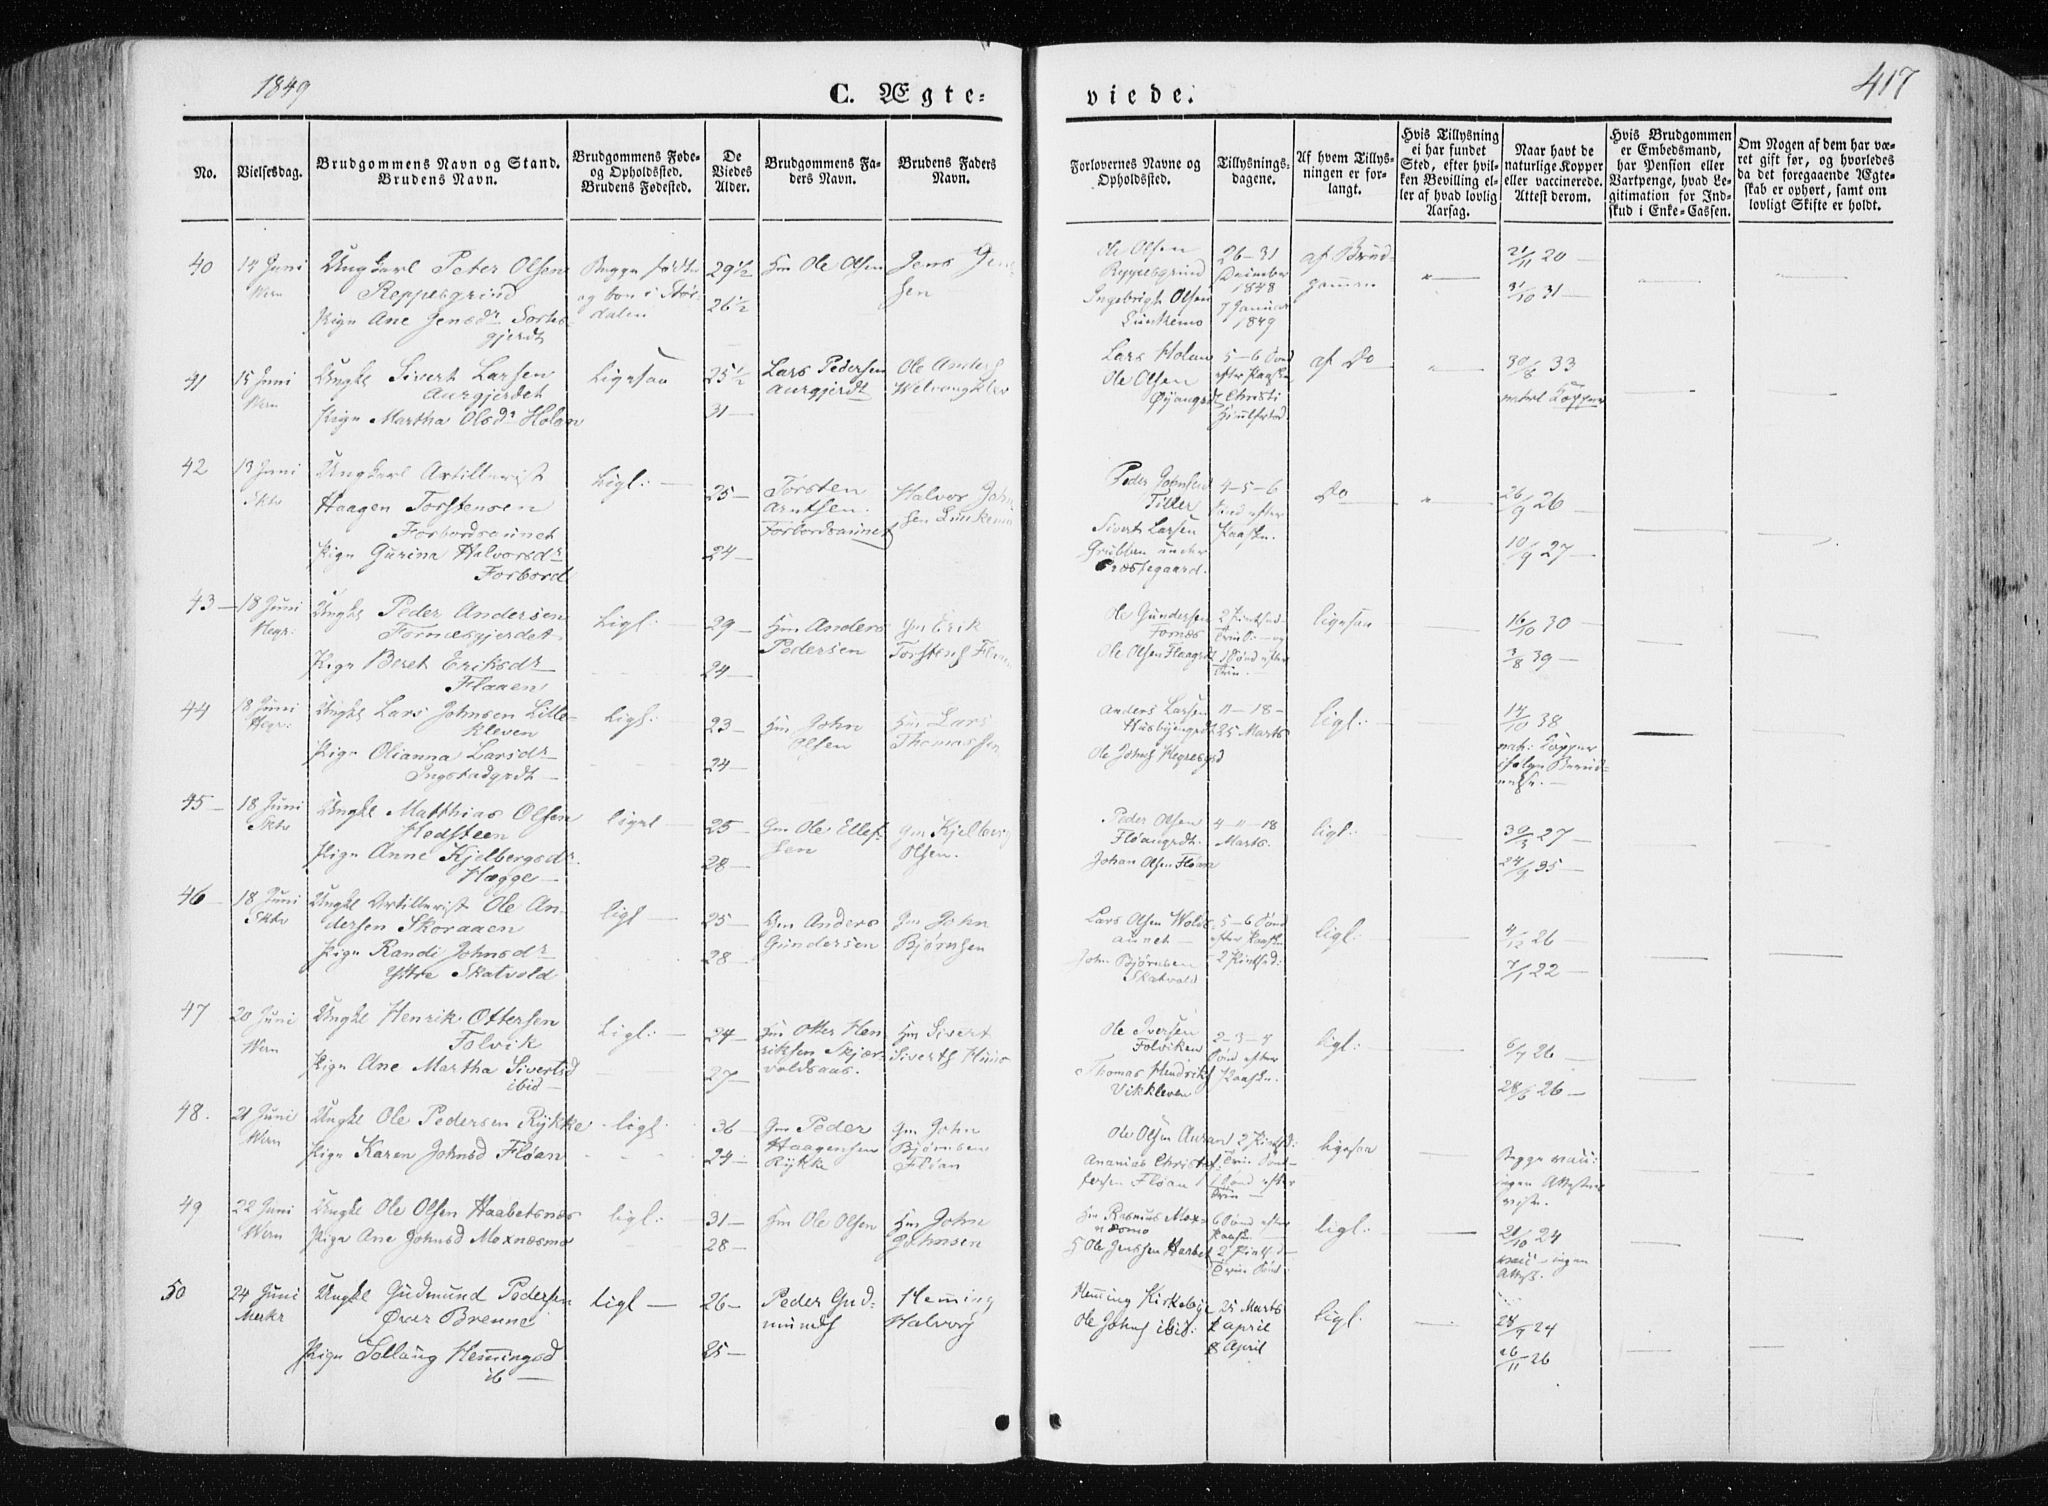 1849
C. Ægte-
viede.
417
No.
Vielsesdag.
Brudgommens Navn og Stand.
Brudens Navn.
Brudgommens Føde-
og Opholdssted.
Brudens Fødested.
De
Viedes
Alder.
Brudgommens Fa-
ders Navn.
Brudens Faders
Navn.
Forlovernes Navne og
Opholdssted.
Tillysnings-
dagene.
Af hvem Tillys-
ningen er for-
langt.
Hvis Tillysning
ei har fundet
Sted, efter hvil-
ken Bevilling el-
ler af hvad lovlig
Aarsag.
Naar havt de
naturlige Kopper
eller vaccinerede.
Attest derom.
Hvis Brudgommen
er Embedsmand,
har Pension eller
Vartpenge, hvad Le-
gitimation for Ind-
skud i Enke-Cassen.
Om Nogen af dem har væ-
ret gift før, og hvorledes
da det foregaaende Ægte-
skab er ophørt, samt om
lovligt Skifte er holdt.
40
14 Juni
Wern
Ungkarl Peter Olsen
Reppesgrind
Pige Ane Jensdr
Begge fødte
og boe i Stør-
dalen
29 1/2
26 1/2
Gm Ole Olsen
Jens Jen-
sen
Ole Olsen
Reppesgrind
Ingebrigt Olsen
Lunkemo
26-31
December
1848
7 Januar
1849
af Brud-
gommen
21/11 20
31/10 31
41
15 Juni
Wern
Ungkl Sivert Larsen
Aurgjerdet
Pige Martha Olsdr Holan
Ligesaa
25 1/2
31
Lars Pedersen
Aurgjerdt
Ole Anders
Lars Holan
Ole Olsen
Øyangrd
5-6 Sønd
efter Paaske
Christi
Himlfartsd.
af Do
30/6 33
natrl Kopper
42
13 Juni
Sktv
Ungkarl Artillerist
Haagen Torstensen
Forbordsaunet
Pige Gurina Halvorsdr
Forbord
Ligl:
25
24
Torsten
Arntsen
Forbordsaunet
Halvor John-
sen Lunkemo
Peder Johnsen
Tiller
Sivert Larsen
Grubben under
Præstegaard.
4-5-6
Sønd efter
Paaske.
Do
26/9 26
10/9 27
43
18 Juni
Hegr:
Ungkl Peder Andersen
Fornesgjerdet
Pige Beret Eriksdr
Flaaen
Ligl:
29
24
Gm Anders
Pedersen
Gm Erik
Ole Gundersen
Fornes
Ole Olsen Flaagrdt
2 Pintsed
Trinit: og
1 Sønd efter
Trin.
ligesaa
16/10 30
3/8 39
44
18 Juni
Hegr:
Ungkl Lars Johnsen Lille-
kleven
Pige Olianna Larsdr
Ingstadgrdt
Ligl:
23
24
Gm John
Olsen
Gm Lars
Thomassen
Anders Larsen
Husbyengrdt
Ole Johns Hegresgrd
11-18-
25 Marts
ligl:
14/10 38
nat: Kopper
ifølge
45
18 Juni
Sktv
Ungkl Matthias Olsen
Hodsteen
Pige Anne Kjelbergsdr
Hægge
ligel
25
28
Gm Ole Ellef-
sen
Gm Kjelberg
Olsen.
Peder Olsen
Fløangrdt.
Johan Olsen Fløan
4-11-18
Marts.
ligl:
30/3 27
24/9 35
46
18 Juni
Sktv
Ungkl Artillerist Ole An-
dersen Skoraaen
Pige Randi Johnsdr
Ystre Skatvold
ligl
25
28
Gm Anders
Gundersen
Gm John
Bjørnsen
Lars Olsen Wold-
aunet
John Bjørnsen
Skatvold
5-6 Sønd
efter Paaske
2 Pintsed:
ligl:
4/12 26
7/1 22
47
20 Juni
Wern
Ungkl Henrik Ottersen
Folvik
Pige Ane Martha Sivertsd
ibid
Ligl:
24
27
Gm Otter Hen-
riksen Skjær-
voldsaas.
Gm Sivert
Ole Iversen
Folviken
Thomas Hendriks
Vikkleven
2-3-4
Sønd efter
Paaske.
ligl:
6/7 26
28/6 26
48.
21 Juni
Wern
Ungkl Ole Pedersen Rykke
Pige Karen Johnsd Fløan
ligl
36
24
Gm Peder
Haagensen
Rykke
Gm John
Bjørnsen
Fløan
Ole Olsen Auran
Ananias Christof-
fersen Fløan
2 Pintsd:
Trin Sønd-
1 Sønd efter
Trin
ligesaa
Begge vacc:
ingen Attester
49
22 Juni
Wern
Ungkl Ole Olsen Haabetsnes
Pige Ane Johnsd Moxnesmo
ligl:
31
28
Gm Ole Olsen
Gm John
Johnsen
Gm Rasmus Mox-
nesmo
Ole Jenssen Haabet
6 Sønd efter
Paaske
2 Pintsd
Trin Sønd:
ligl:
21/10 24
vacc ingen
Attest.
50
24 Juni
Merkr
Ungkl Gudmund Pedersen
Øver Brenne
Pige Sollaug Hemingsd
ib
ligl
26
25
Peder Gud-
munds
Heming
Halvors
Heming Kirkebye
Ole Johns ibid:
25 Marts
1 April
8 April
ligl:
28/9 24
26/11 26